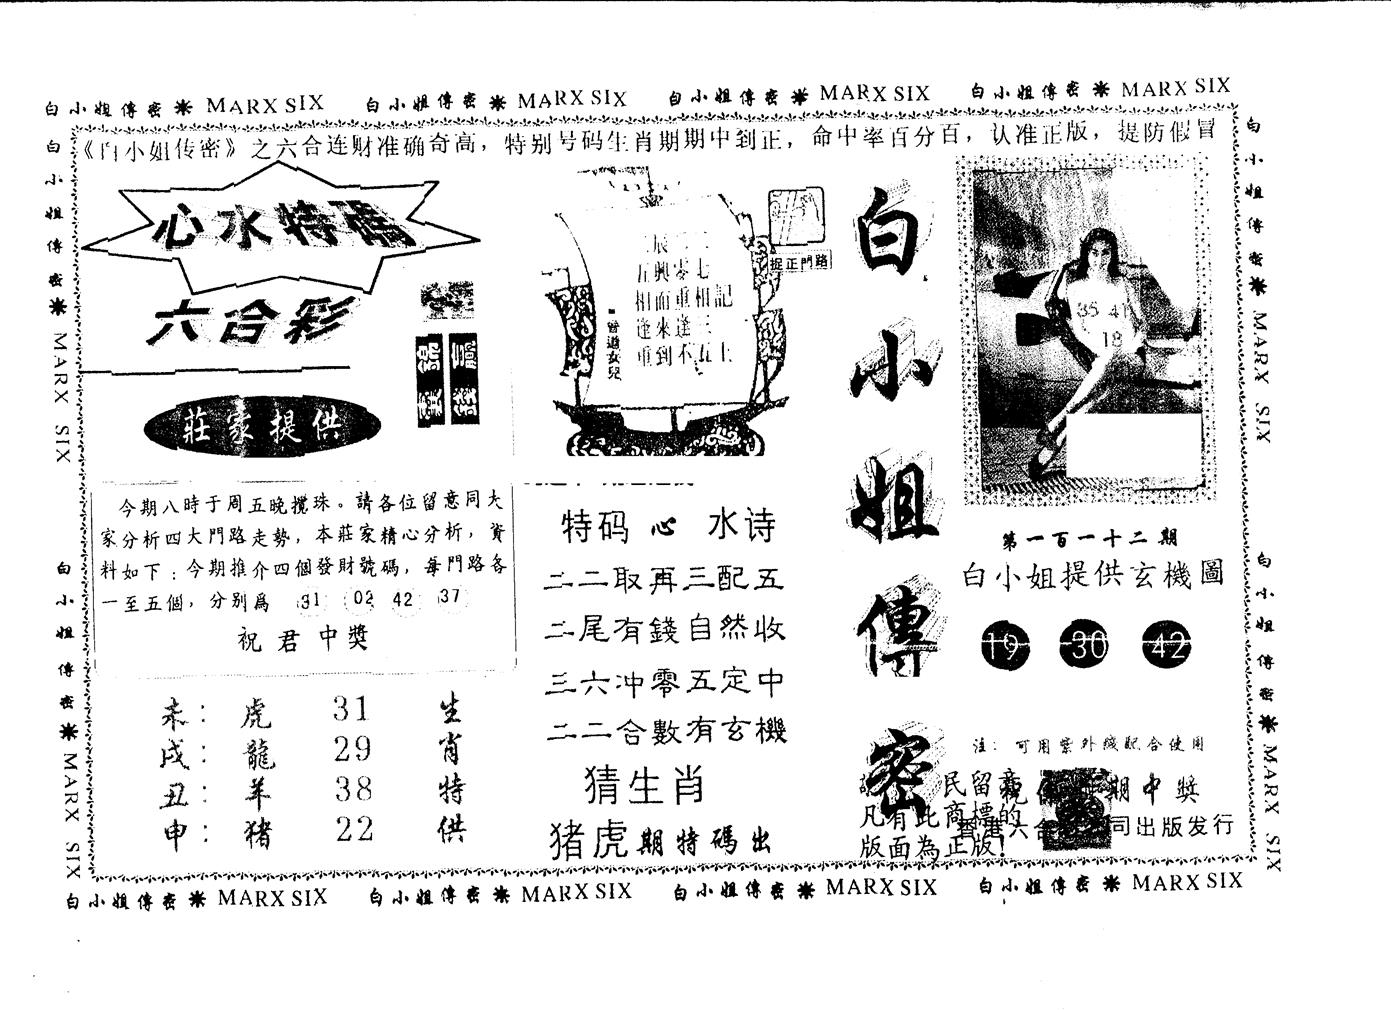 白小姐傳密 MARX SIX 白小姐傳密 MARX SIX 白小姐傳密 MARX SIX 白小姐傳密 MARX SIX
《白小姐传密》之六合连财准确奇高，特别号码生肖期期中到正，命中率百分百，认准正版，提防假冒
白小姐傳密 MARX SIX
白小姐傳密 MARX SIX
心水特碼
六合彩
莊家提供
今期八時于周五晚攪珠。請各位留意同大
家分析四大門路走勢，本莊家精心分析，資
料如下：今期推介四個發財號碼，每門路各
一至五個，分别爲 31 02 42 37
祝君中獎
未：虎 31 生
戌：龍 29 肖
丑：羊 38 特
申：猪 22 供
捉正門路
五興零七
相而重相記
逢來逢三
重到不五上
曾道女兒
特码心水诗
二二取再三配五
二尾有錢自然收
三六冲零五定中
二二合數有玄機
猜生肖
猪虎期特碼出
白小姐傳密
35 41
18
第一百一十二期
白小姐提供玄機圖
19 30 42
注：可用紫外线配合使用
民留意
凡有此商標的
版面為正版！
期中獎
香港六合
司出版发行
白小姐傳密 MARX SIX
白小姐傳密 MARX SIX
白小姐傳密 MARX SIX 白小姐傳密 MARX SIX 白小姐傳密 MARX SIX 白小姐傳密 MARX SIX